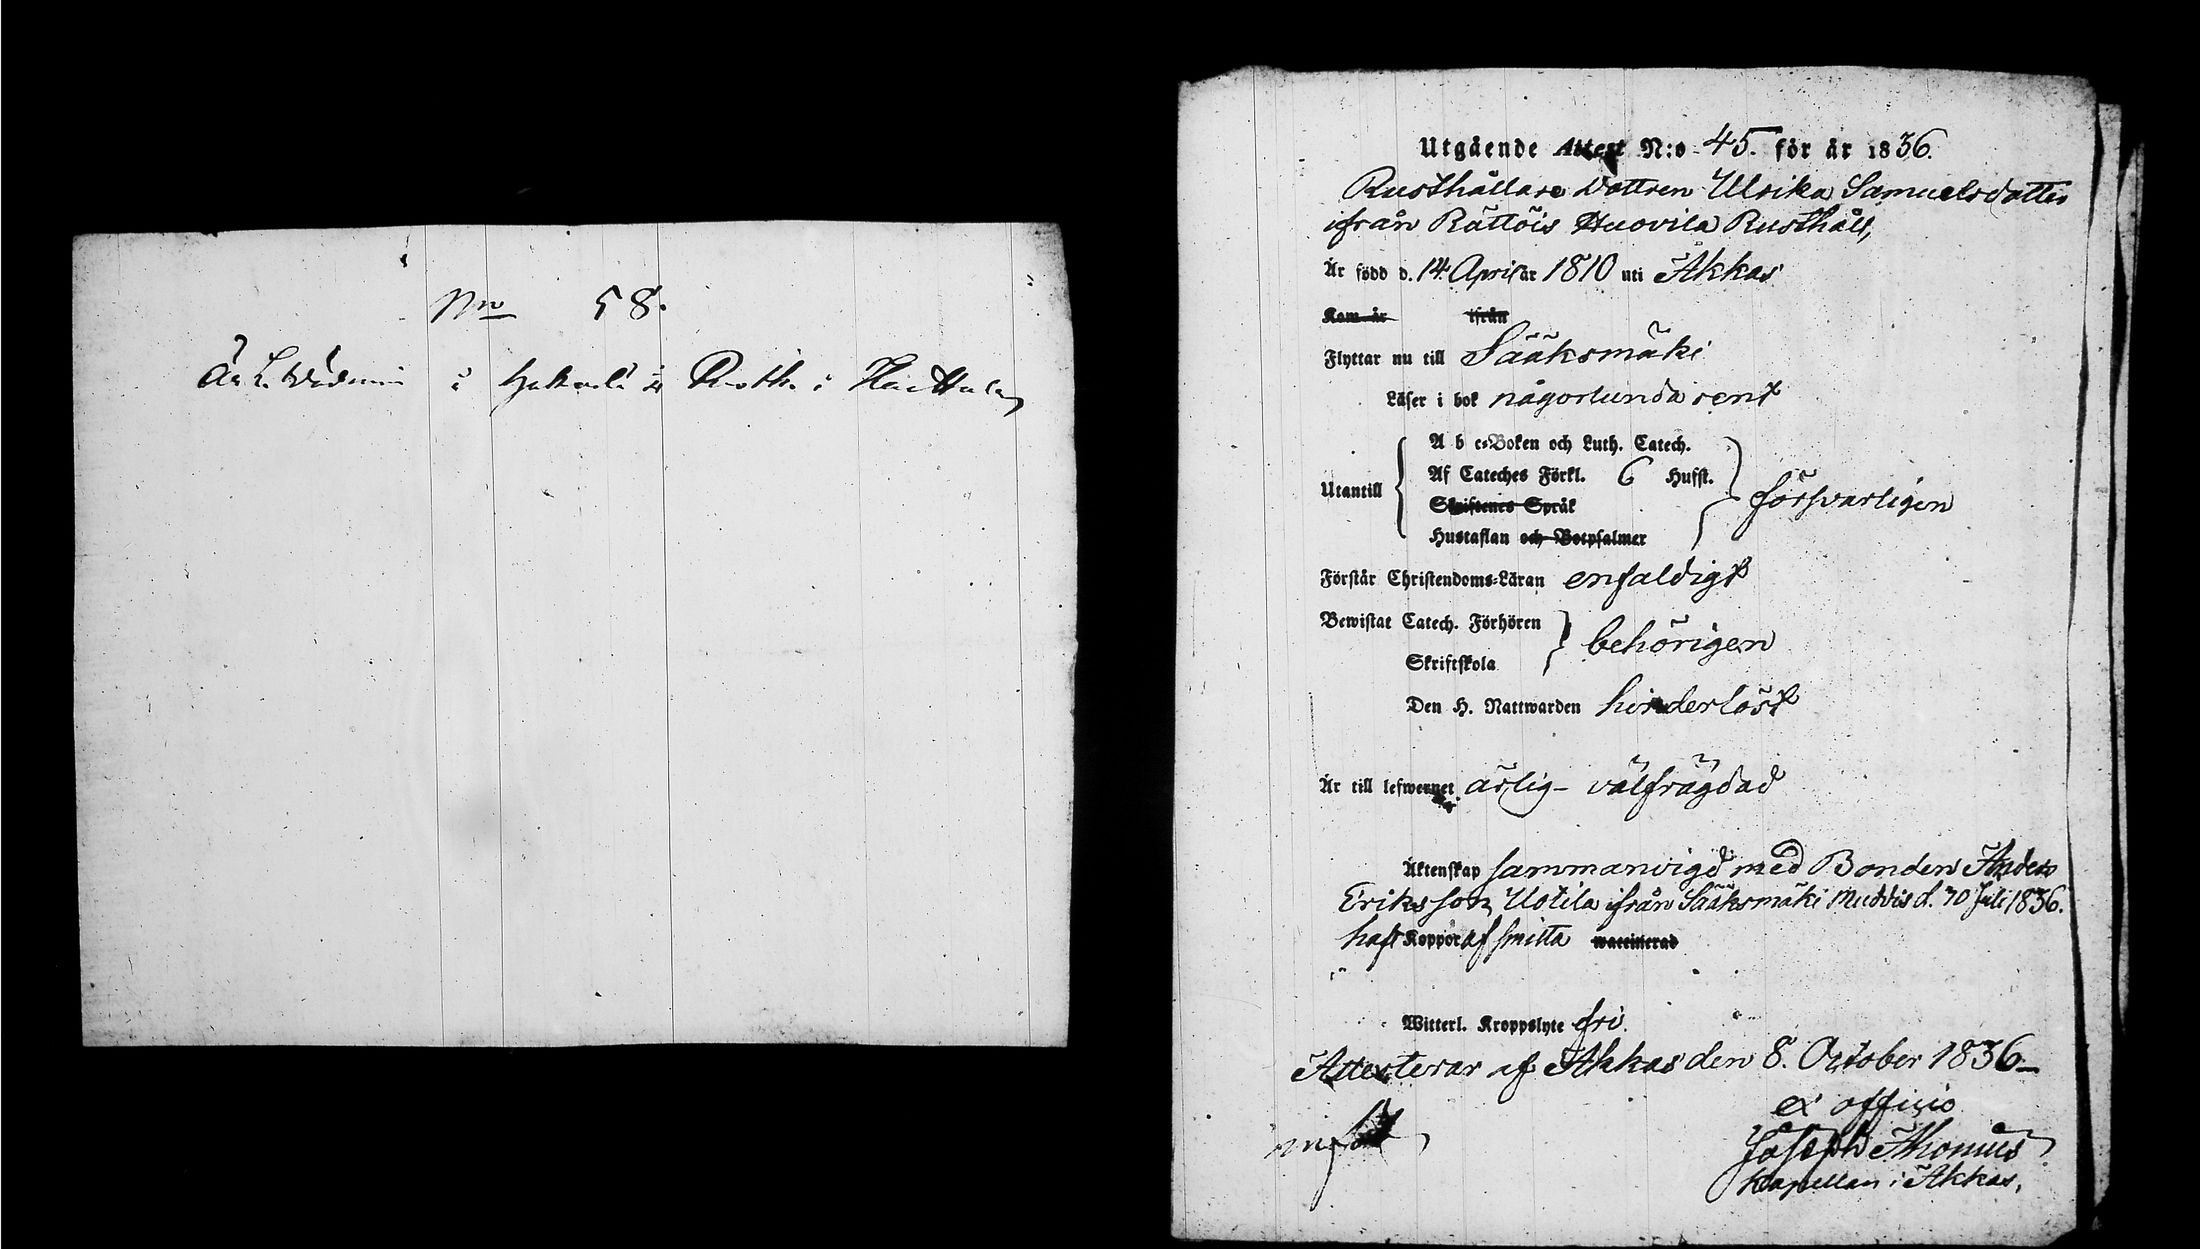 Nro 58.
i Rusth. i
Utgående Attest N:o 45. för år 1836.
Rusthållare Dottren Ulrika Samuelsdotter
ifrån Rättöis Huovila Rusthåll,
Är född d. 14 April år 1810 uti Akkas
Kom år ifrån
Flyttar nu till Sääksmäki
Läser i bok någorlunda rent
A b c-Boken och Luth. Catech.
Af Cateches Förkl. 6 Hufst.
Utantill försvarligen
Skriftenes Språk
Hustaflan och Botpsalmer
Förstår Christendoms-Läran enfaldigt
Bewistat Catech. Förhören
behörigen
Skriftskola
Den H. Nattwarden hinderlöst
Är till lefwernet ärlig - välfrägdad
Äktenskap sammanvigd med Bonden Anders
Eriksson Uotila ifrån Sääksmäki d. Juli 1836.
haft Koppor af smitta waccinerad
Witterl. Kroppslyte fri.
Attesterar af Akkas den 8. October 1836
ex officio
Joseph
Kapellan i Akkas.